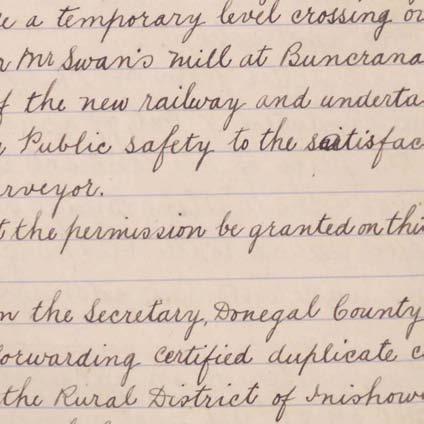 a temporary level crossing
Mr Swan's mill at Buncrana
the new railway and underta
Public safety to the satisfac
rveyor.
t the permission be granted on thi
n the Secretary, Donegal County
forwarding certified duplicate c
the Rural District of Inishow